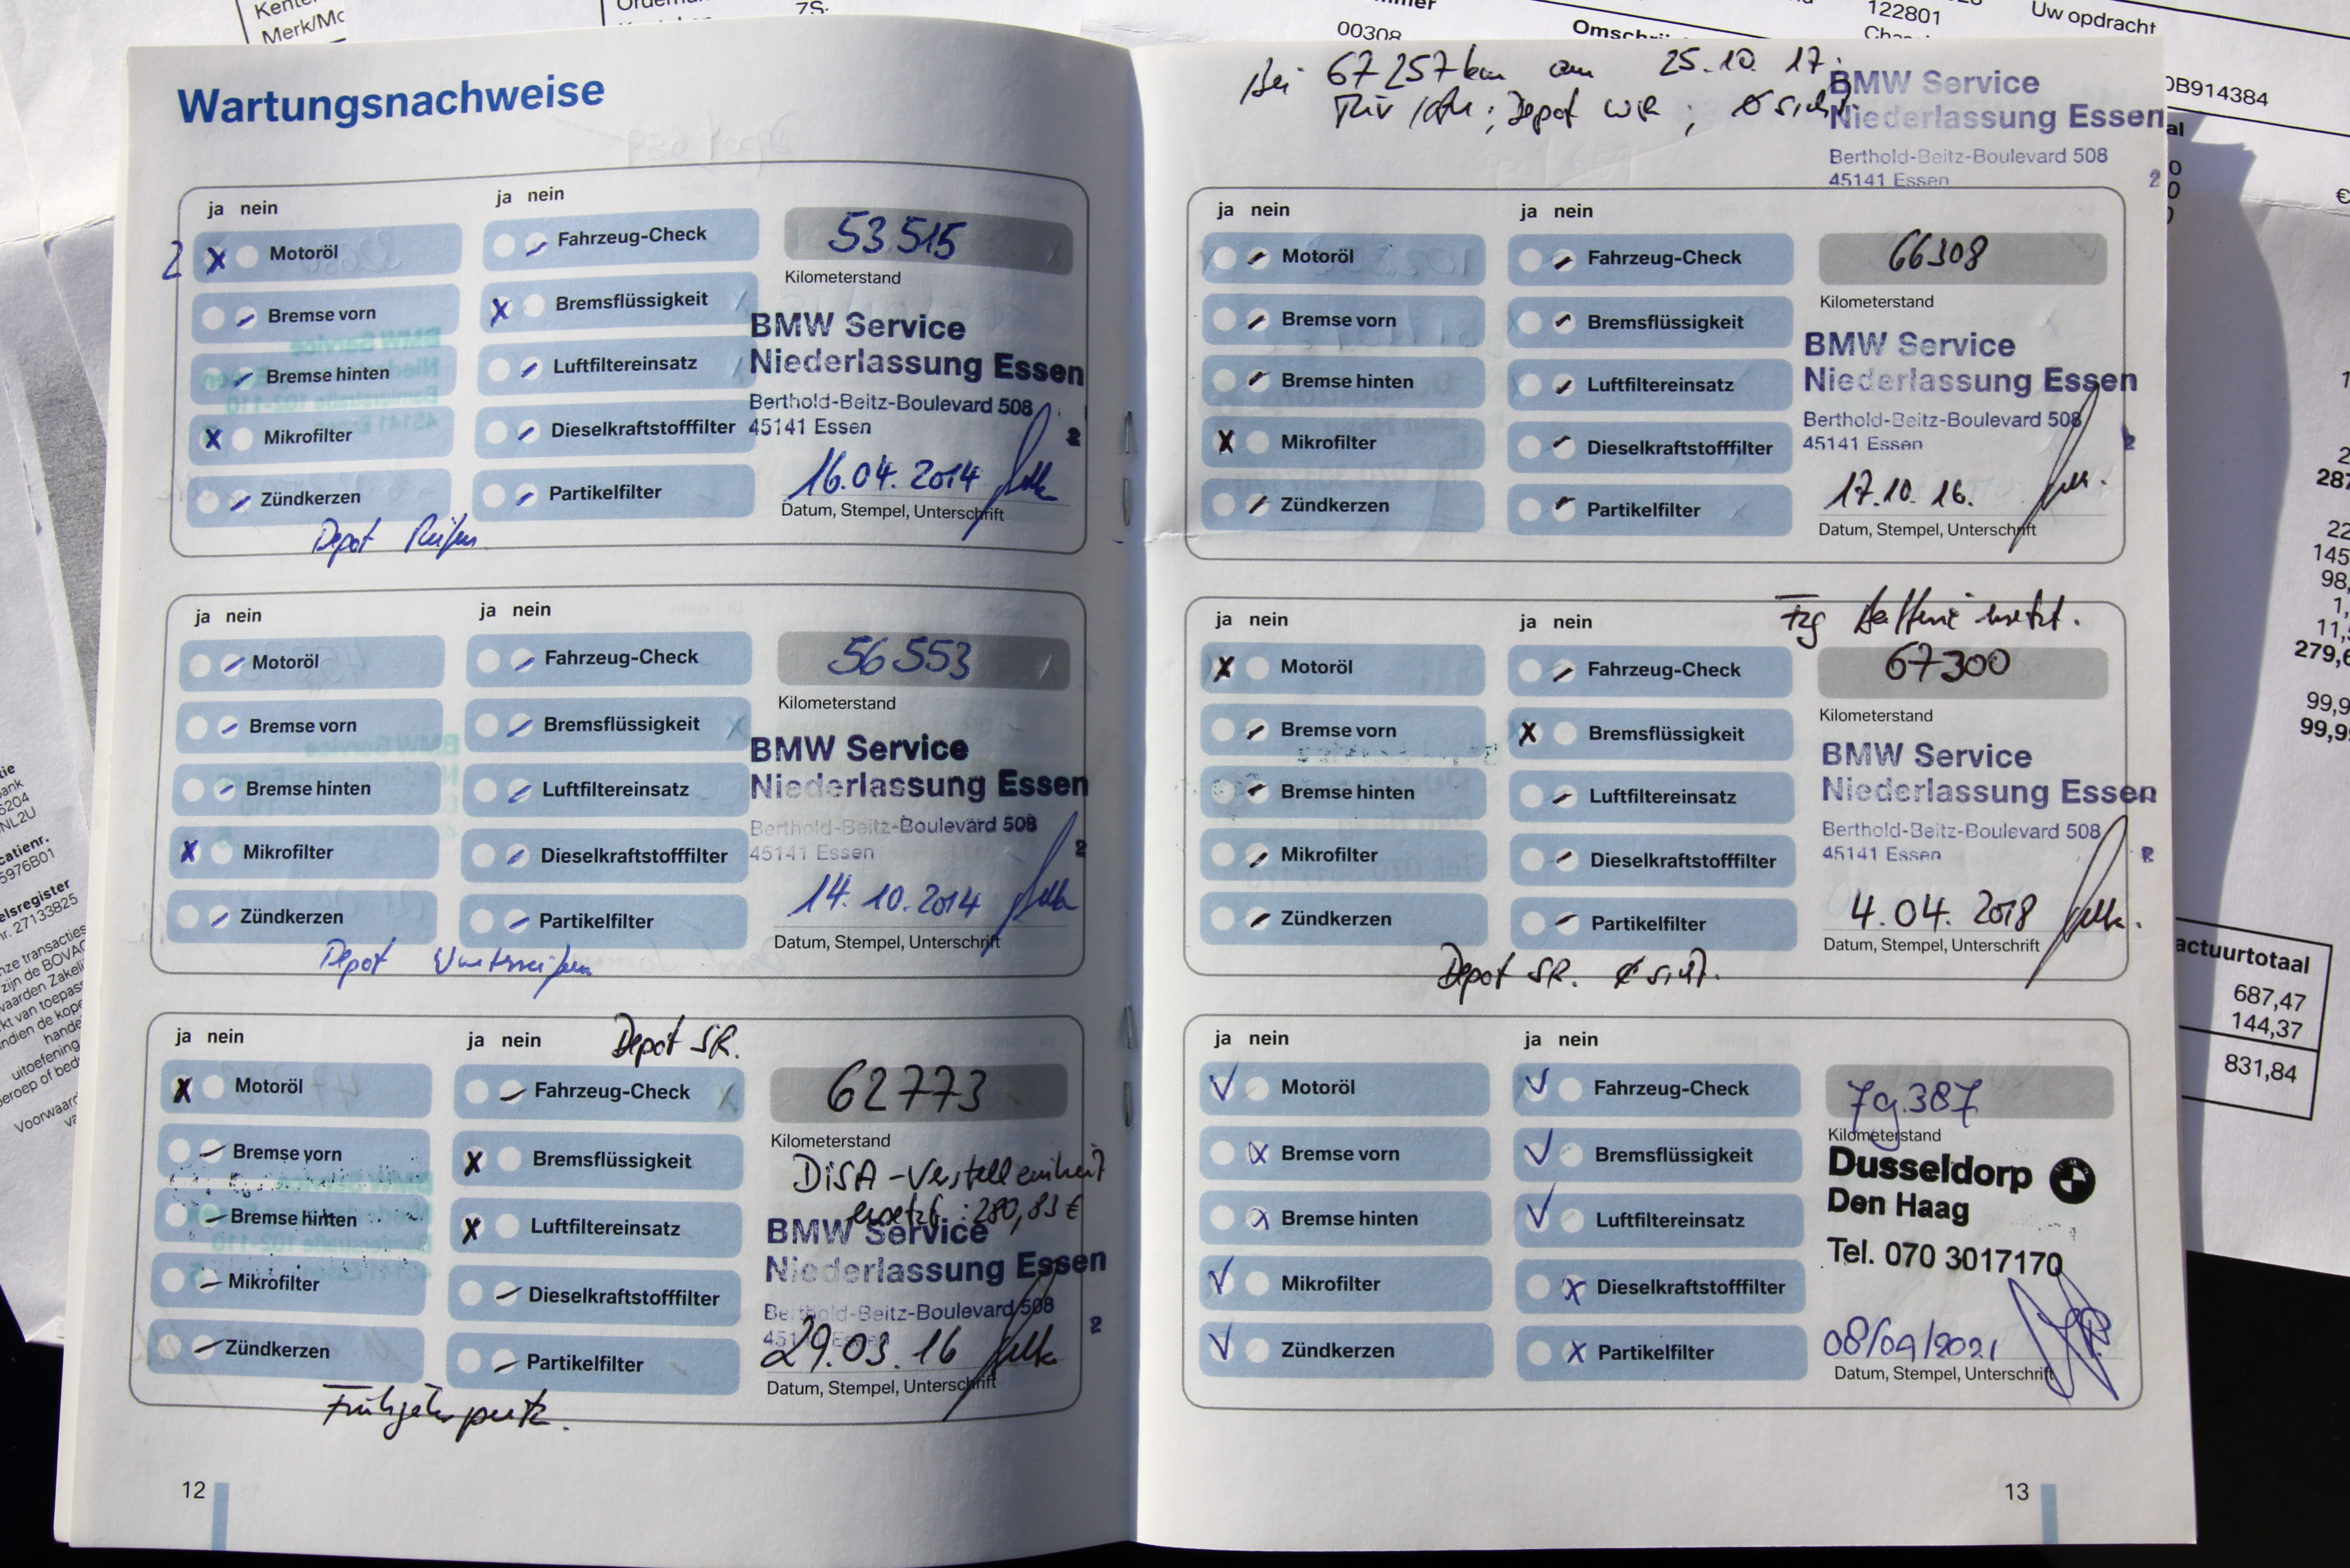 Wartungsnachweise
ja nein
ja nein
2
Motoröl
Bremse vorn
Bremse hinten
Mikrofilter
Zündkerzen
Fahrzeug-Check
Bremsflüssigkeit
Luftfiltereinsatz
Dieselkraftstofffilter
Partikelfilter
53 515
Kilometerstand
BMW Service
Niederlassung Essen
Berthold-Beitz-Boulevard 508
45141 Essen
2
16.04.2014
Datum, Stempel, Unterschrift
Depot Reifen
ja nein
ja nein
Motoröl
Bremse vorn
Bremse hinten
Mikrofilter
Zündkerzen
Fahrzeug-Check
Bremsflüssigkeit
Luftfiltereinsatz
Dieselkraftstofffilter
Partikelfilter
56 553
Kilometerstand
BMW Service
Niederlassung Essen
Berthold-Beitz-Boulevard 508
45141 Essen
2
14.10.2014
Datum, Stempel, Unterschrift
Depot Winterreifen
ja nein
ja nein
Depot SR.
Motoröl
Bremse vorn
Bremse hinten
Mikrofilter
Zündkerzen
Fahrzeug-Check
Bremsflüssigkeit
Luftfiltereinsatz
Dieselkraftstofffilter
Partikelfilter
62773
Kilometerstand
DISA-Verstelleinheit
ersetzt : 280,83 €
BMW Service
Niederlassung Essen
Berthold-Beitz-Boulevard 508
2
29.03.16
Datum, Stempel, Unterschrift
12
Bei 67257km am 25.10.17.
Depot WR ;
BMW Service
Niederlassung Essen
Berthold-Beitz-Boulevard 508
45141 Essen
2
ja nein
ja nein
Motoröl
Bremse vorn
Bremse hinten
Mikrofilter
Zündkerzen
Fahrzeug-Check
Bremsflüssigkeit
Luftfiltereinsatz
Dieselkraftstofffilter
Partikelfilter
66308
Kilometerstand
BMW Service
Niederlassung Essen
Berthold-Beitz-Boulevard 508
45141 Essen
2
17.10.16.
Datum, Stempel, Unterschrift
Fzg Batterie ersetzt.
ja nein
ja nein
Motoröl
Bremse vorn
Bremse hinten
Mikrofilter
Zündkerzen
Fahrzeug-Check
Bremsflüssigkeit
Luftfiltereinsatz
Dieselkraftstofffilter
Partikelfilter
67300
Kilometerstand
BMW Service
Niederlassung Essen
Berthold-Beitz-Boulevard 508
45141 Essen
2
4.04.2018
Datum, Stempel, Unterschrift
Depot SR.
ja nein
ja nein
Motoröl
Bremse vorn
Bremse hinten
Mikrofilter
Zündkerzen
Fahrzeug-Check
Bremsflüssigkeit
Luftfiltereinsatz
Dieselkraftstofffilter
Partikelfilter
79.387
Kilometerstand
Dusseldorp
Den Haag
Tel. 070 3017170
08/09/2021
Datum, Stempel, Unterschrift
13
Merk/Mo
00308
122801
Uw opdracht
0B914384
actuurtotaal
687,47
144,37
831,84
287
22
145
98,
1,
11,
279,6
99,9
99,9
catienr.
5976B01
elsregister
nr. 27133825